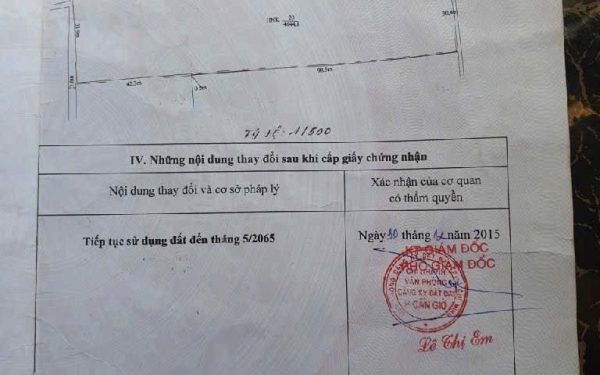 HNK 23
42.3m
0.8m
90.5m
Tỷ lệ: 1/1500
IV. Những nội dung thay đổi sau khi cấp giấy chứng nhận
Nội dung thay đổi và cơ sở pháp lý
Xác nhận của cơ quan
có thẩm quyền
Tiếp tục sử dụng đất đến tháng 5/2065
Ngày 10 tháng 12 năm 2015
KT GIÁM ĐỐC
PHÓ GIÁM ĐỐC
CHI NHÁNH
VĂN PHÒNG
ĐĂNG KÝ ĐẤT ĐAI
H. CẦN GIỜ
Lê Thị Em